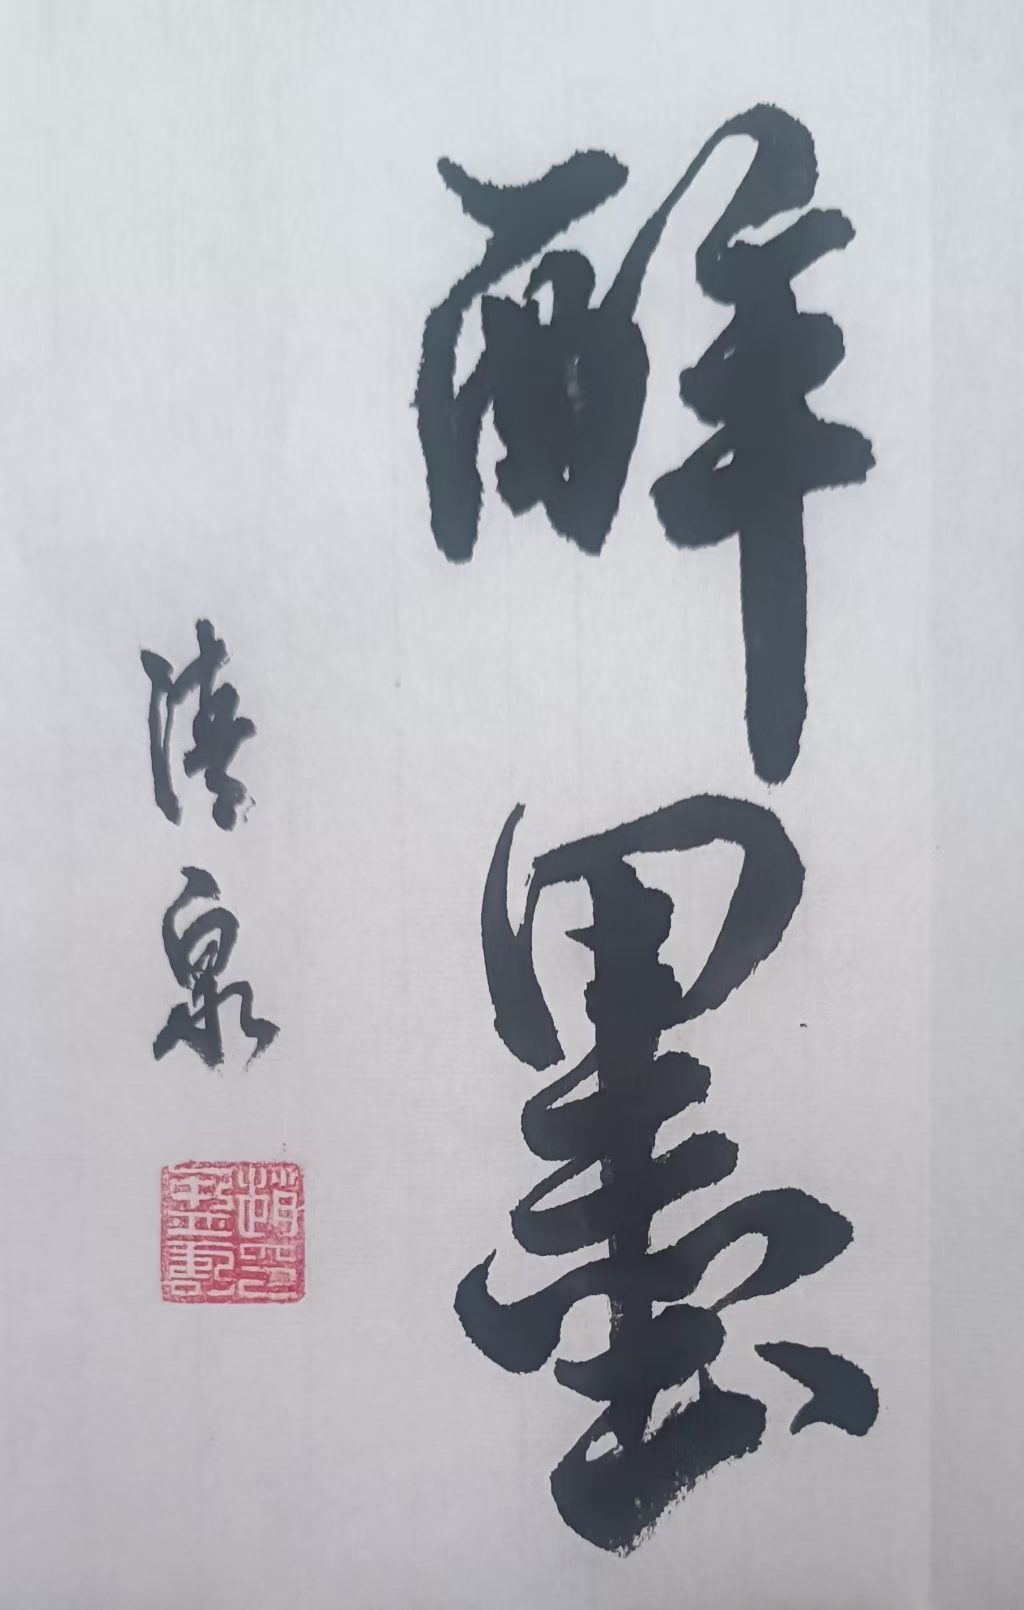 醉墨
清泉